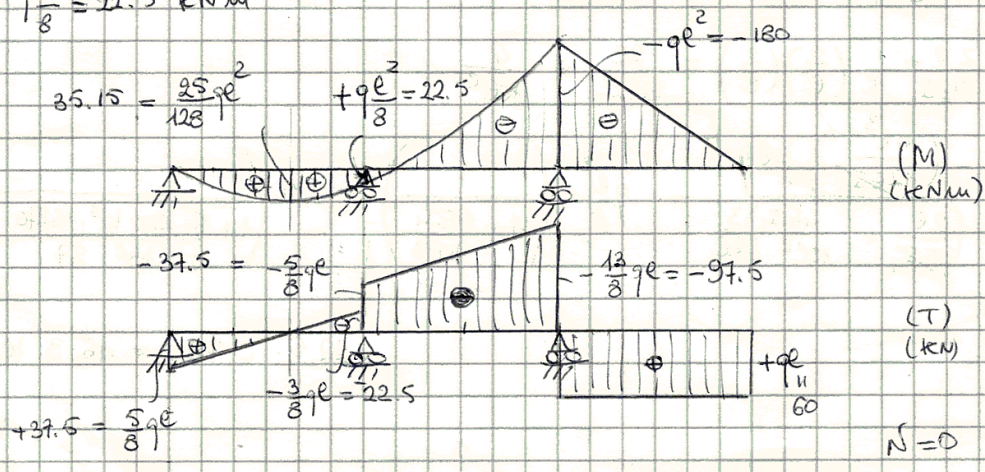 qℓ²/8 = 22.5 kNm
-qℓ² = -180
35.15 = 25/128 qℓ²
+qℓ²/8 = 22.5
⊖ ⊖
⊕ ⊕
(M)
(kNm)
-37.5 = -5/8 qℓ
-13/8 qℓ = -97.5
⊖
⊕ ⊖
(T)
(kN)
⊕
+qℓ = 60
-3/8 qℓ = -22.5
+37.5 = 5/8 qℓ
N = 0